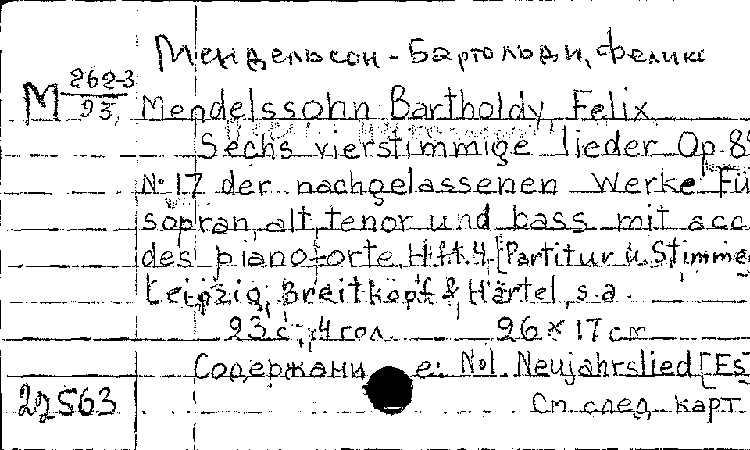 Мендельсон-Бартольди, Феликс
М 262-3
93,
Mendelssohn Bartholdy, Felix
Sechs vierstimmige lieder Op. 8
№ 17 der nachgelassenen Werke. Fü
sopran, alt, tenor und bass mit acc
des pianoforte. Hft. 4. [Partitur u. Stimme
Leipzig, Breitkopf & Härtel, s.a.
23 с.; 4 гол. 26 x 17 см
Содержание: No1. Neujahrslied [Es
22563
См. след. карт.